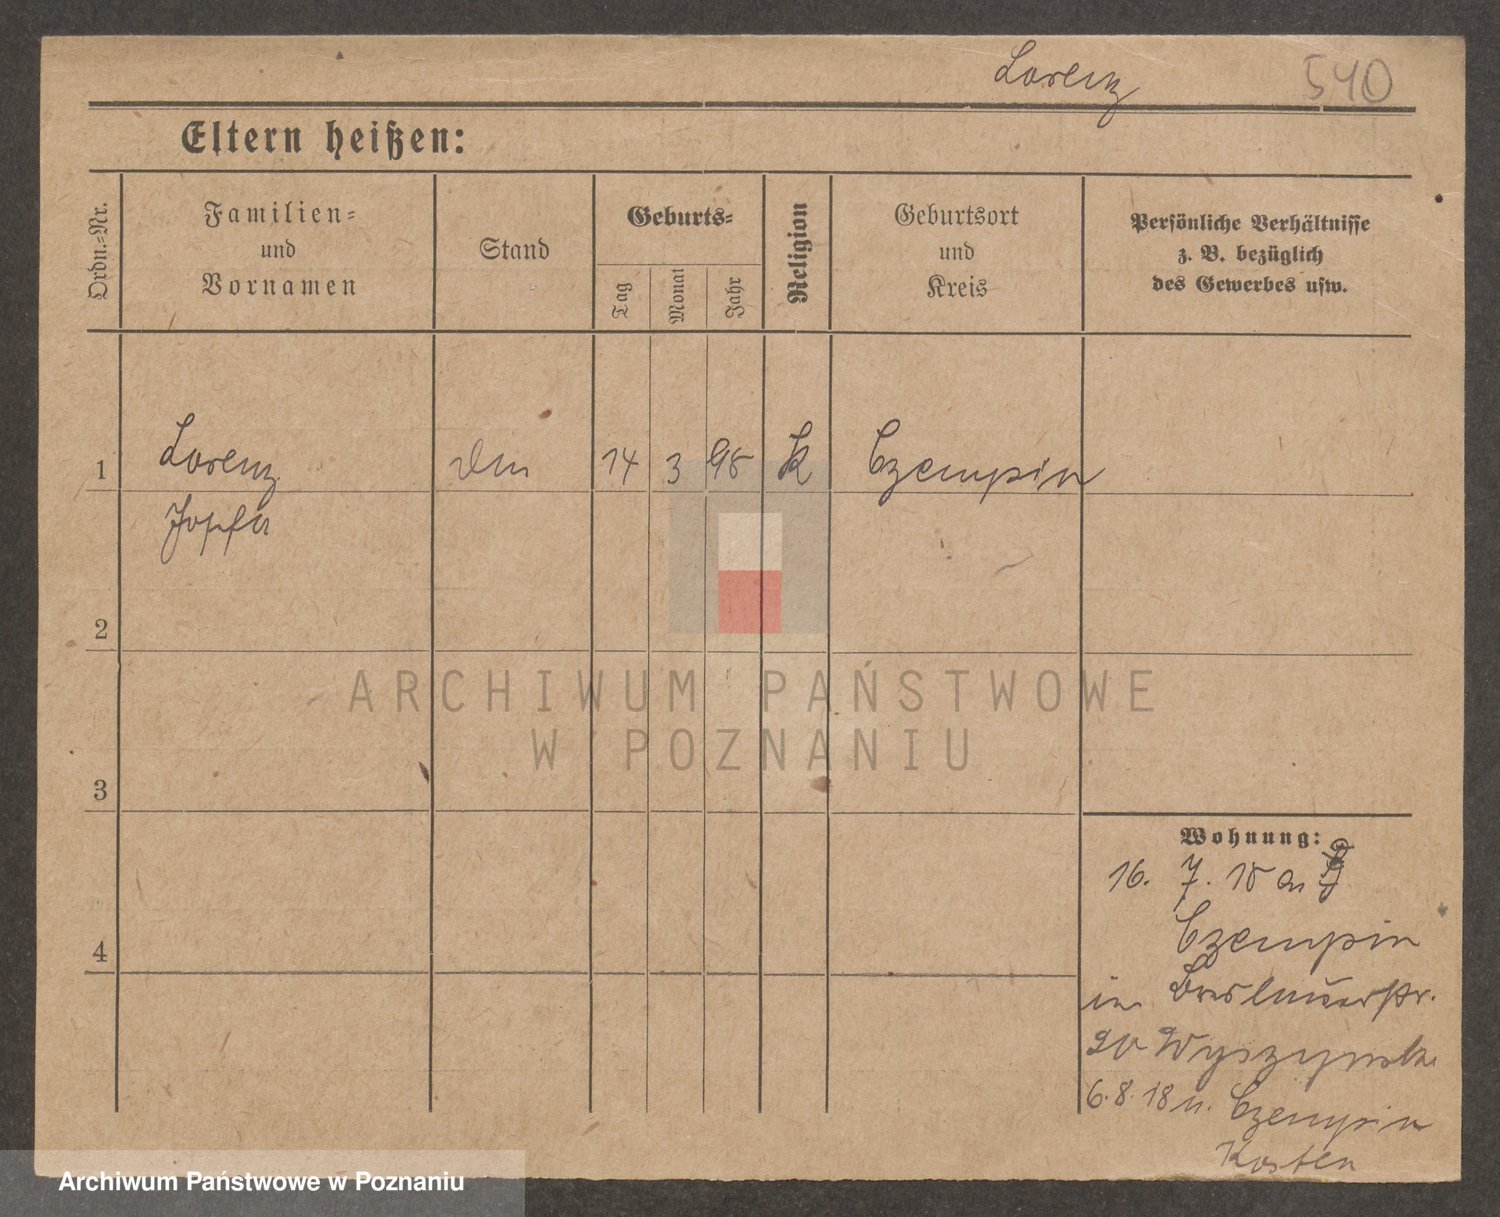 Lorenz 540
Eltern heißen:
Ordn.-Nr.
Familien-
und
Vornamen
Stand
Geburts-
Tag
Monat
Jahr
Religion
Geburtsort
und
Kreis
Persönliche Verhältnisse
z. B. bezüglich
des Gewerbes usw.
1 Lorenz 14 3 98 k Czempin
2
3
4
Wohnung:
16. 7. 18 an
Czempin
in Breslauerstr.
20 Wyszynska
6. 8. 18 n. Czempin
Kosten
ARCHIWUM PAŃSTWOWE
W POZNANIU
Archiwum Państwowe w Poznaniu